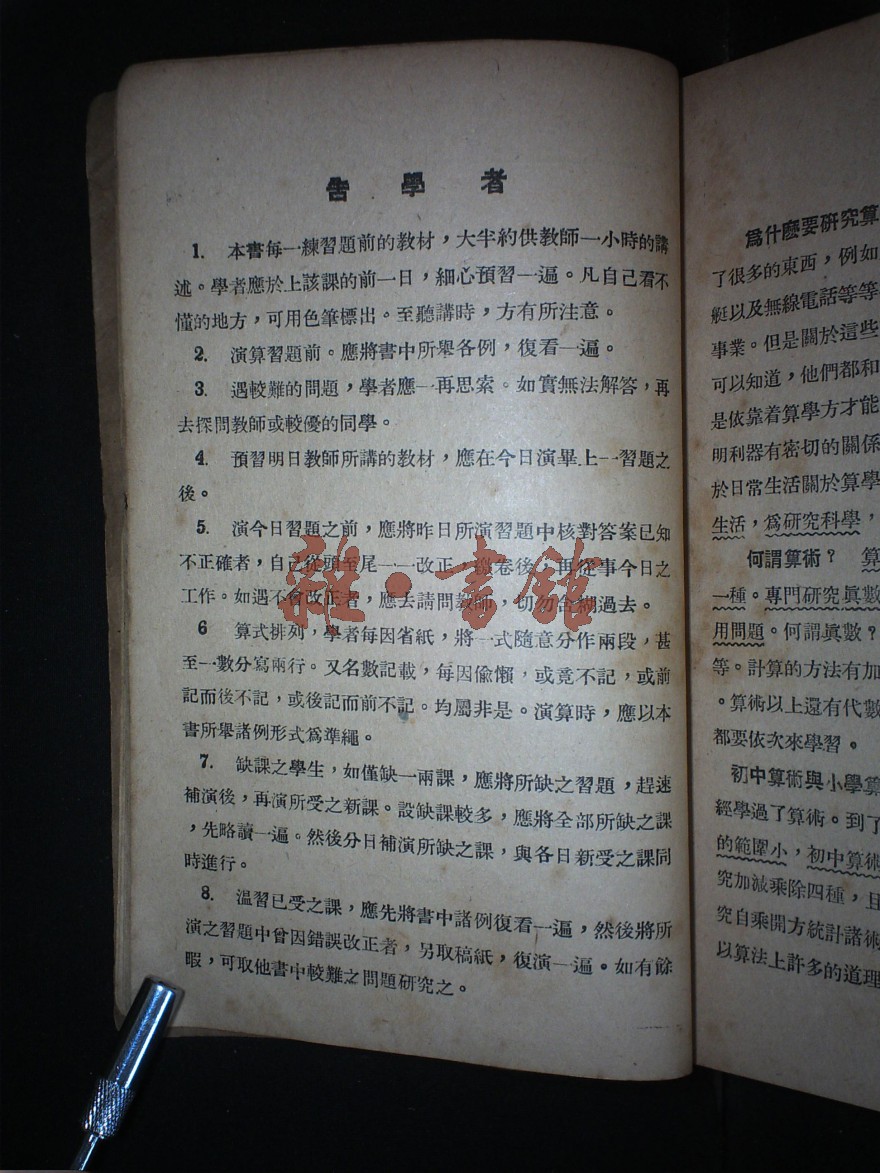 告學者
1. 本書每一練習題前的教材，大半約供教師一小時的講
述。學者應於上該課的前一日，細心預習一遍。凡自己看不
懂的地方，可用色筆標出。至聽講時，方有所注意。
2. 演算習題前。應將書中所舉各例，復看一遍。
3. 遇較難的問題，學者應一再思索。如實無法解答，再
去探問教師或較優的同學。
4. 預習明日教師所講的教材，應在今日演畢上一習題之
後。
5. 演今日習題之前，應將昨日所演習題中核對答案已知
不正確者，自己從頭至尾一一改正，繳卷後，再從事今日之
工作。如遇不會改正者，應去請問教師，切勿含糊過去。
6 算式排列，學者每因省紙，將一式隨意分作兩段，甚
至一數分寫兩行。又名數記載，每因偷懶，或竟不記，或前
記而後不記，或後記而前不記。均屬非是。演算時，應以本
書所舉諸例形式爲準繩。
7. 缺課之學生，如僅缺一兩課，應將所缺之習題，趕速
補演後，再演所受之新課。設缺課較多，應將全部所缺之課
，先略讀一遍。然後分日補演所缺之課，與各日新受之課同
時進行。
8. 溫習已受之課，應先將書中諸例復看一遍，然後將所
演之習題中曾因錯誤改正者，另取稿紙，復演一遍。如有餘
暇，可取他書中較難之問題研究之。
雜·書館
爲什麽要研究算
了很多的東西，例如
艇以及無線電話等等
事業。但是關於這些
可以知道，他們都和
是依靠着算學方才能
明利器有密切的關係
於日常生活關於算學
生活，爲研究科學，
何謂算術？ 算
一種。專門研究眞數
用問題。何謂眞數？
等。計算的方法有加
。算術以上還有代數
都要依次來學習。
初中算術與小學算
經學過了算術。到了
的範圍小，初中算術
究加減乘除四種，且
究自乘開方統計諸術
以算法上許多的道理